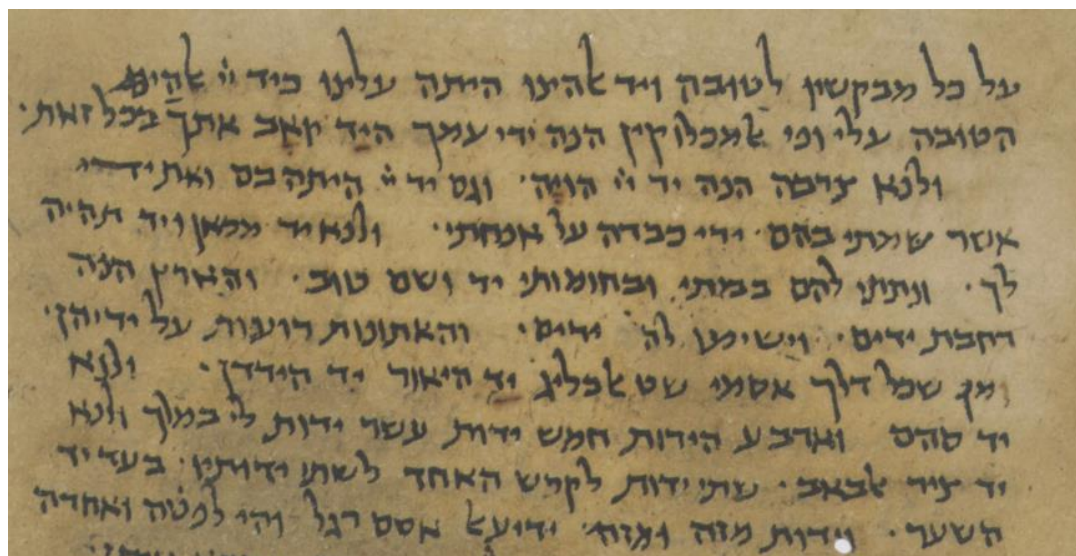 על כל מבקשיו לטובה ויד אלהינו היתה עלינו כיד יי אלהים
הטובה עלי ומן אלמכלוקין הנה ידי עמך היד יואב אתך בכל זאת ·
ולנא צרבה הנה יד יי הויה · וגם יד יי היתה בם ואת ידי
אשר שמתי בהם · ידי כבדה על אנחתי · ולנא יד מכאן ויד תהיה
לך · ונתתי להם בביתי ובחומותי יד ושם טוב · והארץ הנה
רחבת ידים · וישימו לה ידים · והאתונות רועות על ידיהן ·
ומן שכל דלך אסמי שט אלכליג יד היאור יד הירדן · ולנא
יד סהם וארבע הידות חמש ידות עשר ידות לי במלך ולנא
יד ציר אלבאב · שתי ידות לקרש האחד לשתי ידותיו · בעד יד
השער · וידות מזה ומזה · אסם רגל והי למטה ואחדה